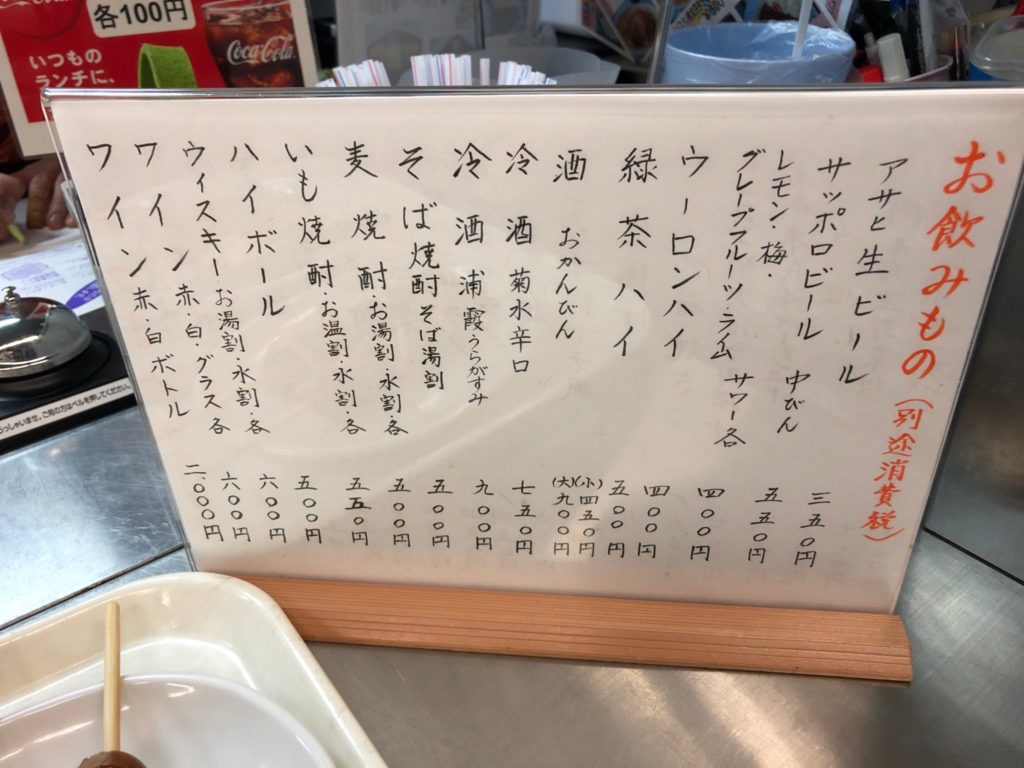 お飲みもの(別途消費税)
アサヒ生ビール 三五〇円
サッポロビール 中びん 五五〇円
レモン・梅・
グレープフルーツ・ライム サワー各 四〇〇円
ウーロンハイ 四〇〇円
緑茶ハイ 五〇〇円
酒 おかんびん (小)四五〇円 (大)九〇〇円
冷酒 菊水辛口 七五〇円
冷酒 浦霞うらがすみ 九〇〇円
そば焼酎そば湯割 五〇〇円
麦焼酎・お湯割・水割・各 五〇〇円
いも焼酎・お温割・水割・各 五五〇円
ハイボール 五〇〇円
ウィスキーお湯割・水割・各 六〇〇円
ワイン赤・白・グラス各 六〇〇円
ワイン赤・白ボトル 二、〇〇〇円
各100円
いつもの
ランチに、
Coca-Cola
らっしゃいませ。ご用の方はベルを押してください。